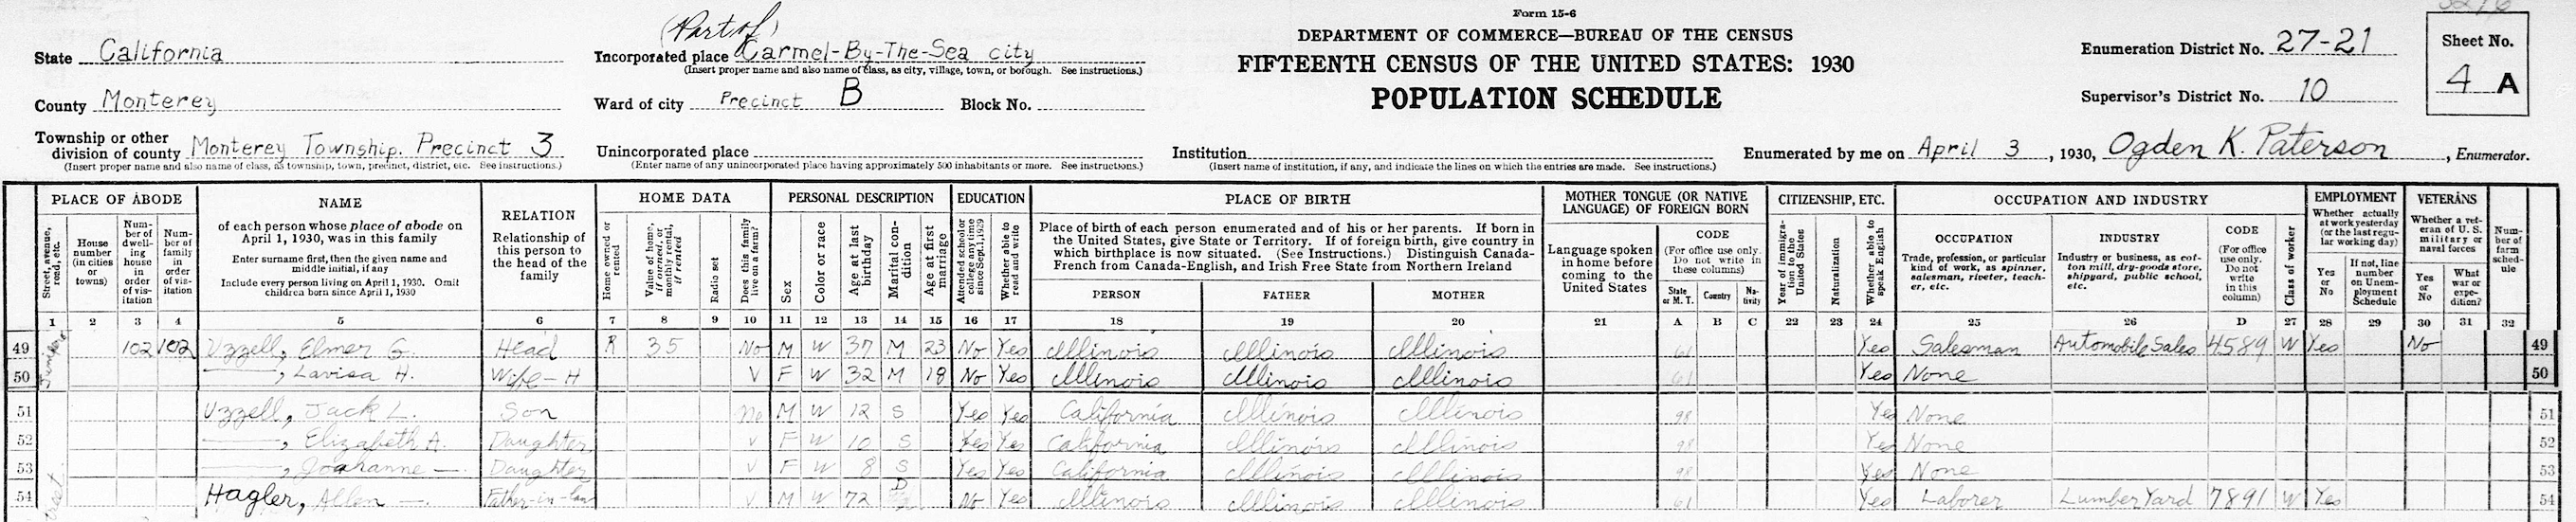 Form 15-6
(Part of)
State California
Incorporated place Carmel-By-The-Sea city
(Insert proper name and also name of class, as city, village, town, or borough. See instructions.)
DEPARTMENT OF COMMERCE—BUREAU OF THE CENSUS
FIFTEENTH CENSUS OF THE UNITED STATES: 1930
POPULATION SCHEDULE
Enumeration District No. 27-21
Supervisor's District No. 10
Sheet No.
4 A
County Monterey
Ward of city Precinct B Block No.
Township or other
division of county Monterey Township. Precinct 3
(Insert proper name and also name of class, as township, town, precinct, district, etc. See instructions.)
Unincorporated place
(Enter name of any unincorporated place having approximately 500 inhabitants or more. See instructions.)
Institution
(Insert name of institution, if any, and indicate the lines on which the entries are made. See instructions.)
Enumerated by me on April 3, 1930, Ogden K. Paterson, Enumerator.
PLACE OF ABODE
Street, avenue, road, etc.
House number (in cities or towns)
Number of dwelling house in order of visitation
Number of family in order of visitation
NAME
of each person whose place of abode on
April 1, 1930, was in this family
Enter surname first, then the given name and
middle initial, if any
Include every person living on April 1, 1930. Omit
children born since April 1, 1930
RELATION
Relationship of this person to the head of the family
HOME DATA
Home owned or rented
Value of home, if owned, or monthly rental, if rented
Radio set
Does this family live on a farm?
PERSONAL DESCRIPTION
Sex
Color or race
Age at last birthday
Marital condition
Age at first marriage
EDUCATION
Attended school or college any time since Sept. 1, 1929
Whether able to read and write
PLACE OF BIRTH
Place of birth of each person enumerated and of his or her parents. If born in
the United States, give State or Territory. If of foreign birth, give country in
which birthplace is now situated. (See Instructions.) Distinguish Canada-
French from Canada-English, and Irish Free State from Northern Ireland
PERSON FATHER MOTHER
MOTHER TONGUE (OR NATIVE
LANGUAGE) OF FOREIGN BORN
Language spoken in home before coming to the United States
CODE
(For office use only. Do not write in these columns)
State or M. T. Country Nativity
CITIZENSHIP, ETC.
Year of immigration to the United States
Naturalization
Whether able to speak English
OCCUPATION AND INDUSTRY
OCCUPATION
Trade, profession, or particular kind of work, as spinner, salesman, riveter, teacher, etc.
INDUSTRY
Industry or business, as cotton mill, dry-goods store, shipyard, public school, etc.
CODE
(For office use only. Do not write in this column)
Class of worker
EMPLOYMENT
Whether actually at work yesterday (or the last regular working day)
Yes or No
If not, line number on Unemployment Schedule
VETERANS
Whether a veteran of U. S. military or naval forces
Yes or No
What war or expedition?
Number of farm schedule
1 2 3 4 5 6 7 8 9 10 11 12 13 14 15 16 17 18 19 20 21 A B C 22 23 24 25 26 D 27 28 29 30 31 32
49 102 102 Uzzell, Elmer G. Head R 35 No M W 37 M 23 No Yes Illinois Illinois Illinois 61 Yes Salesman Automobile Sales 4589 W Yes No 49
50 ——, Lavisa H. Wife-H V F W 32 M 18 No Yes Illinois Illinois Illinois 61 Yes None 50
51 Uzzell, Jack L. Son No M W 12 S Yes Yes California Illinois Illinois 98 Yes None 51
52 ——, Elizabeth A. Daughter V F W 10 S Yes Yes California Illinois Illinois 98 Yes None 52
53 ——, Joahanne — Daughter V F W 8 S Yes Yes California Illinois Illinois 98 Yes None 53
54 Hagler, Allen —. Father-in-law V M W 72 D No Yes Illinois Illinois Illinois 61 Yes Laborer Lumber Yard 7891 W Yes 54